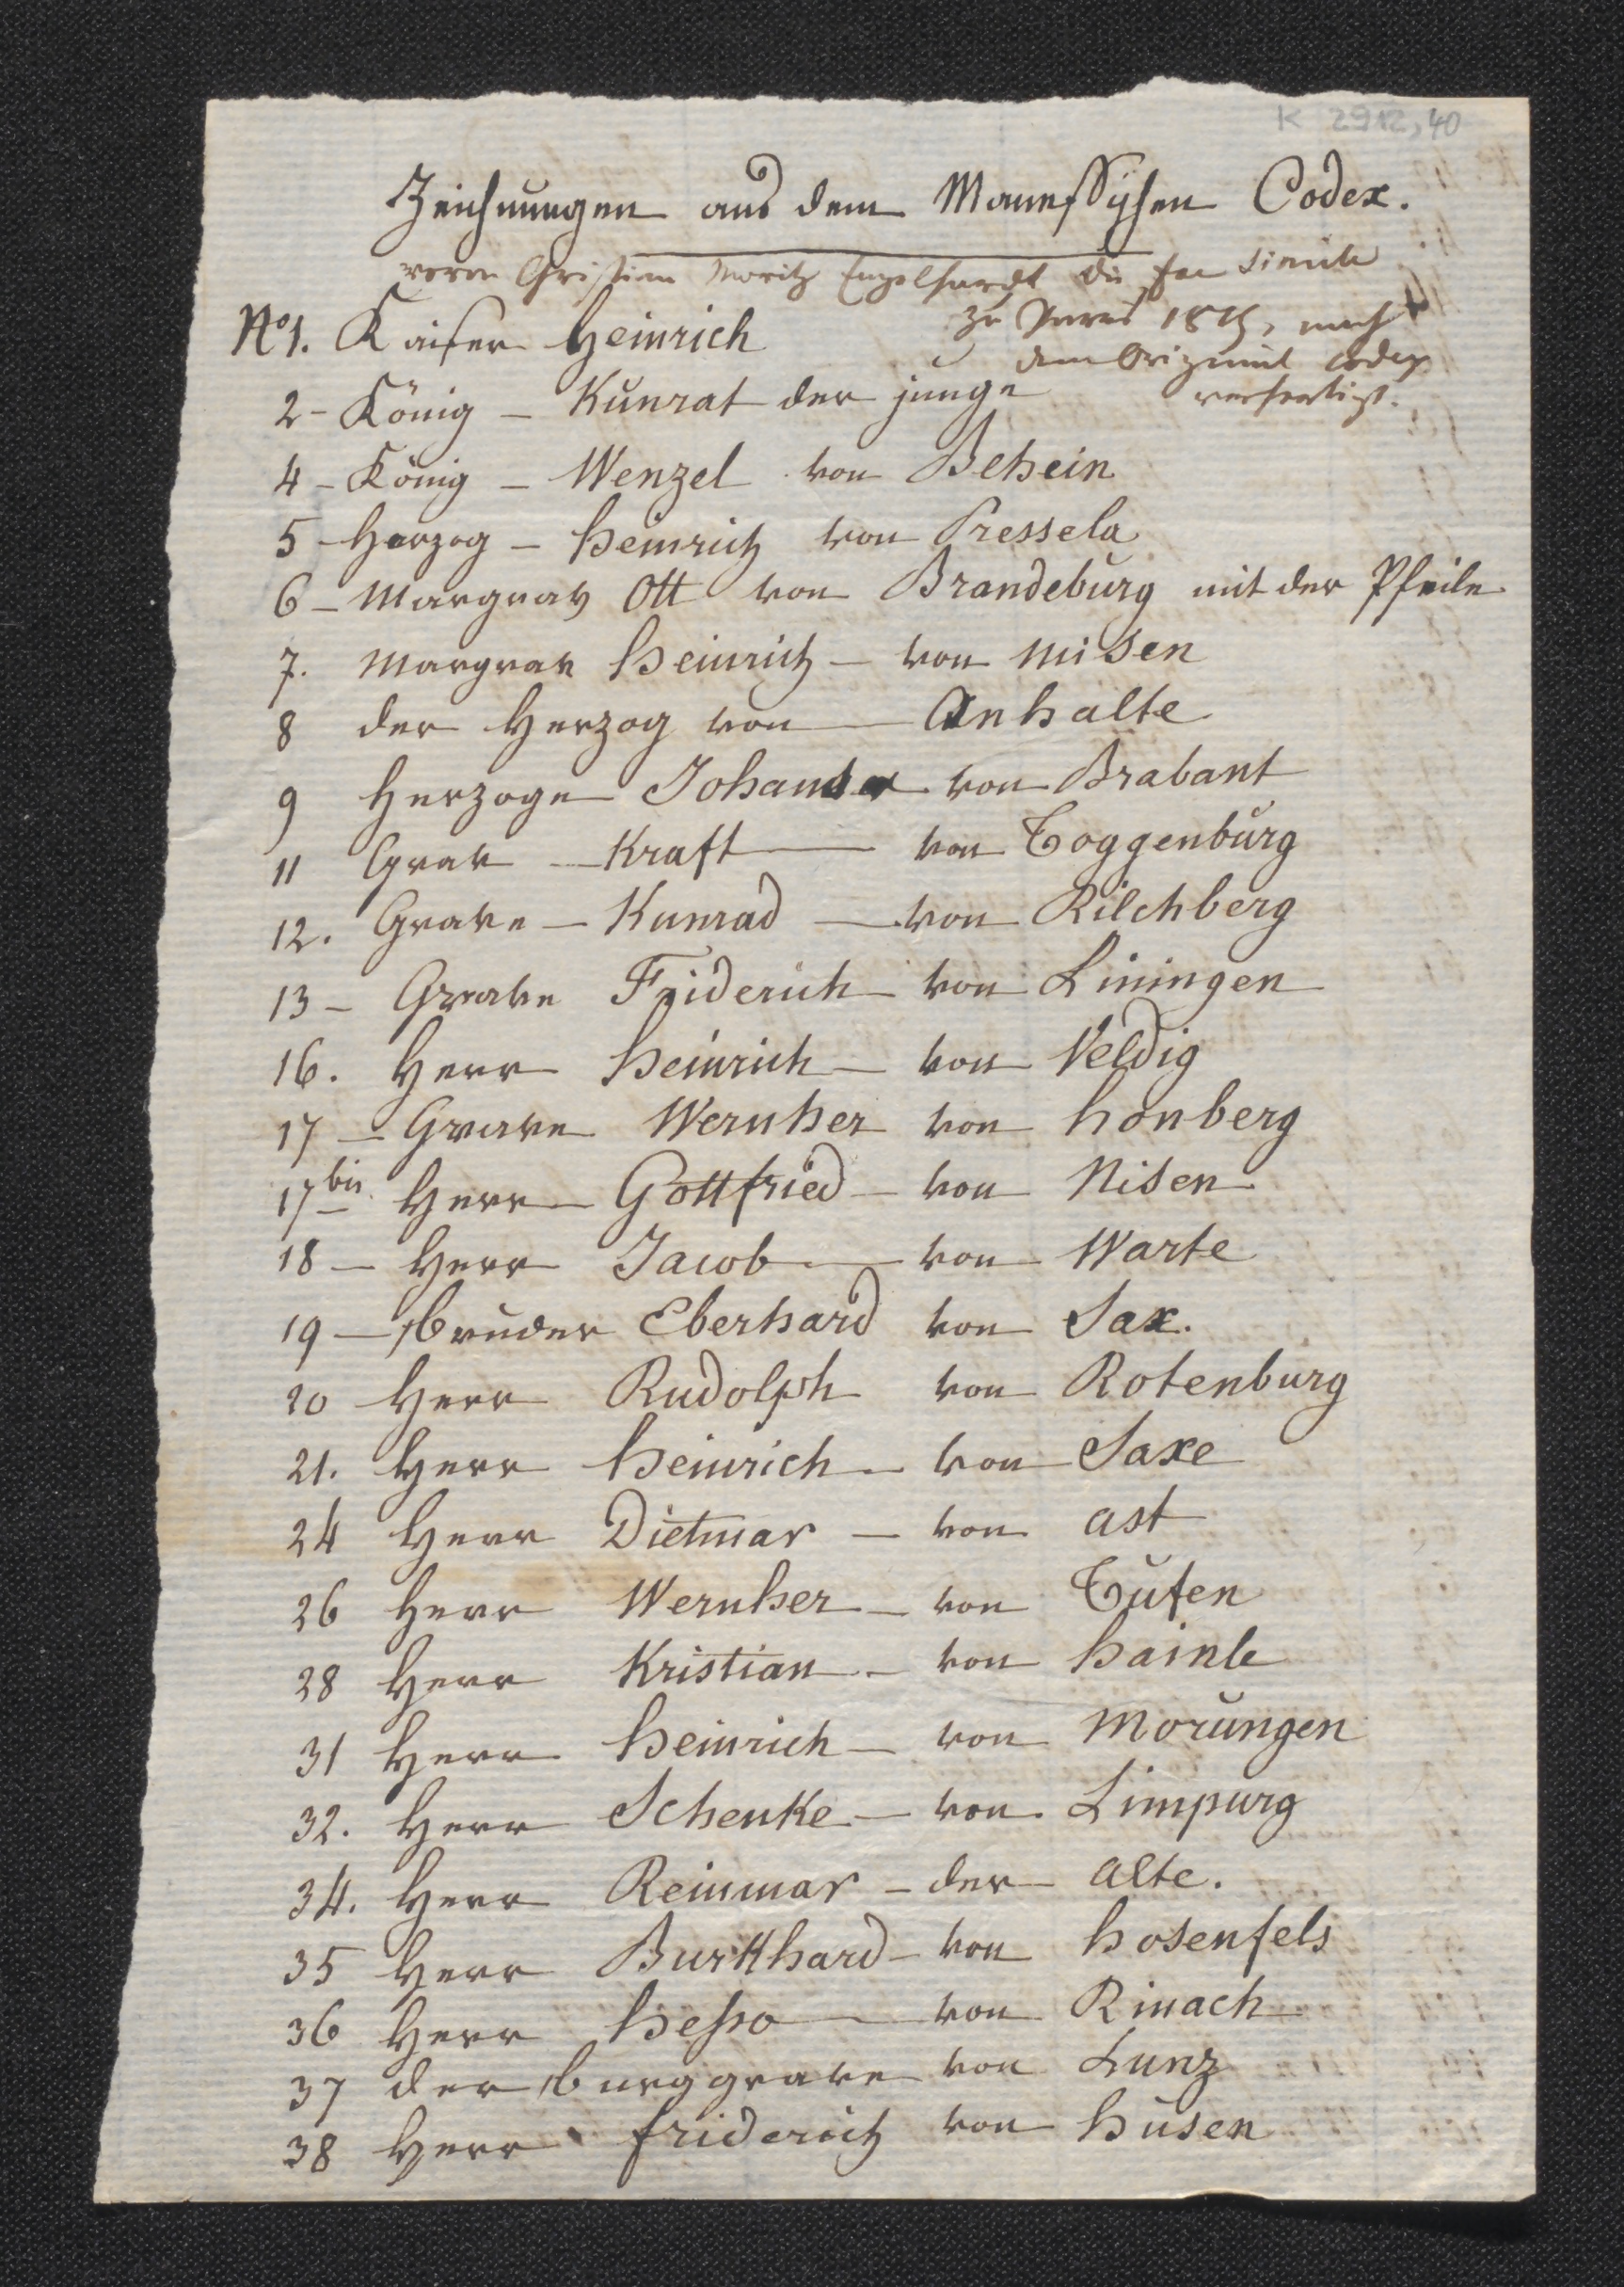 K 2912,40
Zeichnungen aus dem Manessischen Codex.
von Christian Moritz Engelhardt die fac simile
zu Paris, nach
dem Original codex
verfertigt.
No 1. Kaiser Heinrich
2 - König - Kunrat der junge
4 - König - Wenzel von Behein
5 - Herzog - Heinrich von Pressela
6 - Margrav Ott von Brandeburg mit der Pfeile
7. Margrav Heinrich - von Misen
8 der Herzog von - Anhalte
9 Herzoge Johans von Brabant
11 Grav - Kraft - von Toggenburg
12. Grave - Kunrad - von Kilchberg
13 - Grave Friderich von Liningen
16. Herr Heinrich - von Veldig
17 - Grave Wernher von Honberg
17 bis Herr - Gottfried - von Nisen
18 - Herr Jacob - von Warte
19 - Bruder Eberhard von Sax.
20 Herr Rudolph von Rotenburg
21. Herr Heinrich - von Saxe
24 Herr Dietmar - von Ast
26 Herr Wernher - von Tufen
28 Herr Kristian - von Hainle
31 Herr Heinrich - von Morungen
32. Herr Schenke - von Limpurg
34. Herr Reinmar - der Alte.
35 Herr Burkhard - von Hosenfels
36 Herr Hesso - von Rinach
37 der Burggrave von Lunz
38 Herr Friderich von Husen